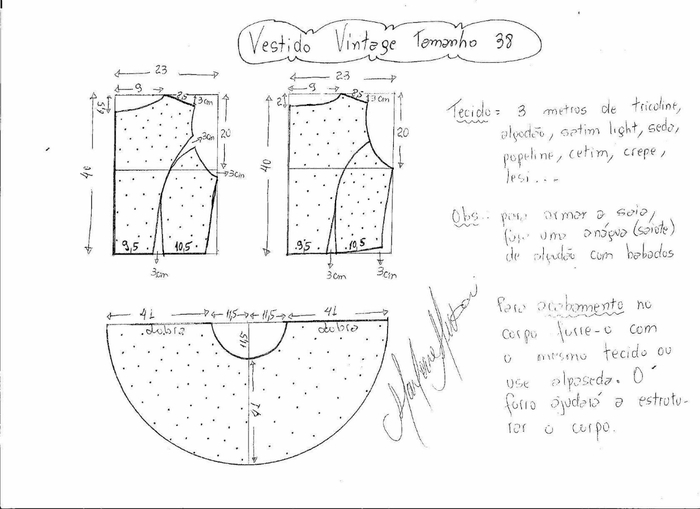 Vestido Vintage Tamanho 38
23
9
2,5
3cm
6,5
3cm
20
40
3cm
9,5
10,5
3cm
23
9
2,5
3cm
2
20
40
9,5
10,5
3cm
3cm
41
11,5
11,5
41
dobra
dobra
11,5
41
Tecido = 3 metros de tricoline,
algodão, satim light, seda,
popeline, cetim, crepe,
lesi...
Obs.: para armar a saia,
faça uma anágua (saiote)
de algodão com babados
Para acabamento no
corpo forre-o com
o mesmo tecido ou
use alpaseda. O
forro ajudará a estrutu-
rar o corpo.